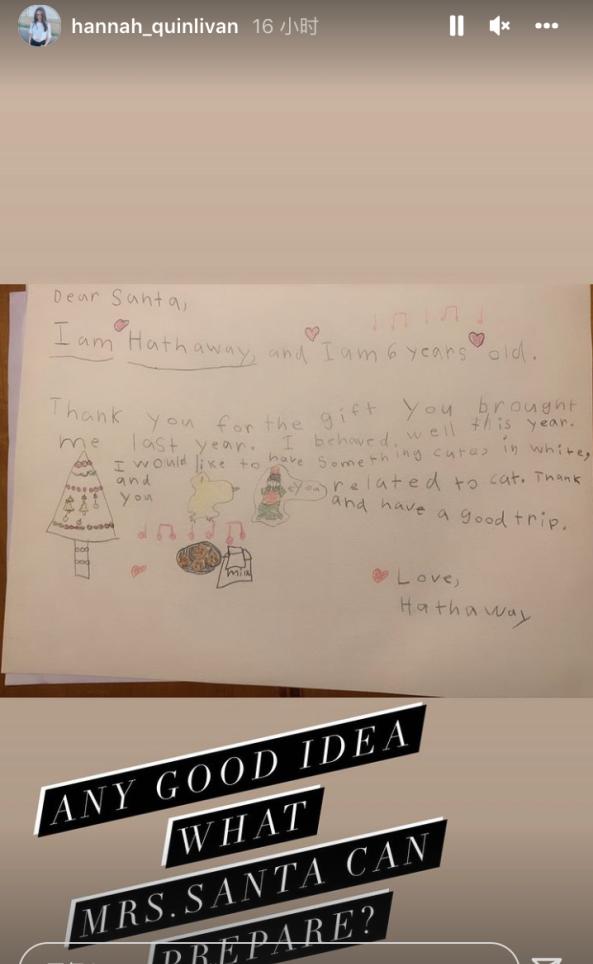 hannah_quinlivan 16 小时
Dear Santa,
I am Hathaway, and I am 6 years old.
Thank you for the gift you brought
me last year. I behaved well this year.
I would like to have something cute, in white,
and related to cat. Thank
you and have a good trip.
Love,
Hathaway
ANY GOOD IDEA
WHAT
MRS.SANTA CAN
PREPARE?